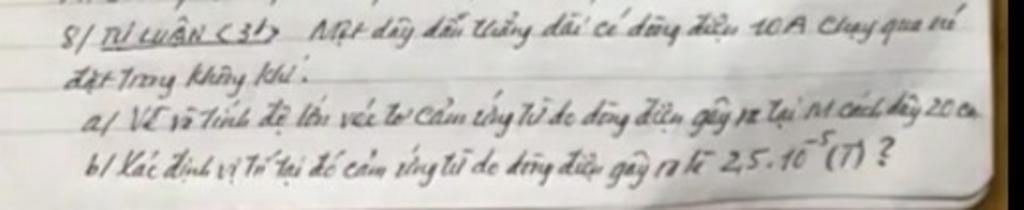 8/ TỰ LUẬN (3đ) Một dây dẫn thẳng dài có dòng điện 10A chạy qua nó
đặt trong không khí.
a/ Vẽ và tính độ lớn véc tơ cảm ứng từ do dòng điện gây ra tại M cách dây 20 cm
b/ Xác định vị trí tại đó cảm ứng từ do dòng điện gây ra là 2,5.10⁻⁵ (T) ?